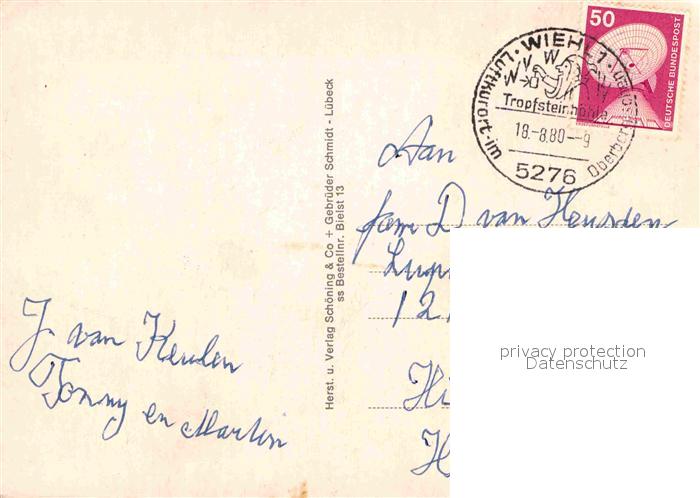 50
DEUTSCHE BUNDESPOST
WIEHL 1
Luftkurort im
Tropfsteinhöhle
18.-8.80--9
5276
Herst. u. Verlag Schöning & Co + Gebrüder Schmidt - Lübeck
ss Bestellnr. Bielst 13
Aan
fam D van Heusden
12
Hi
H
J. van Keulen
Tonny en Martin
privacy protection
Datenschutz